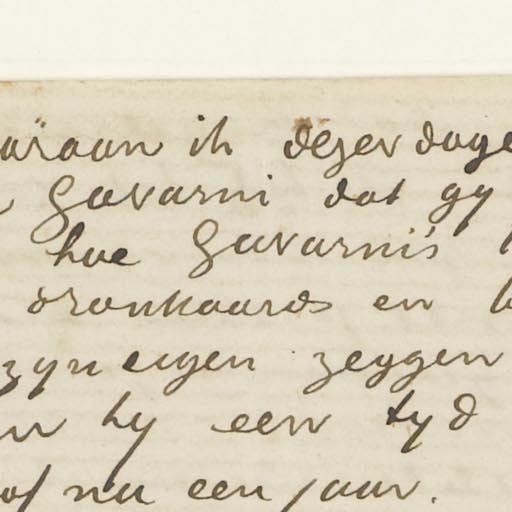 waaraan ik dezer dage
Gavarni dat gy
hoe Gavarni's
dronkaards en
zyn eigen zeggen
hy een tyd
of na een jaar.